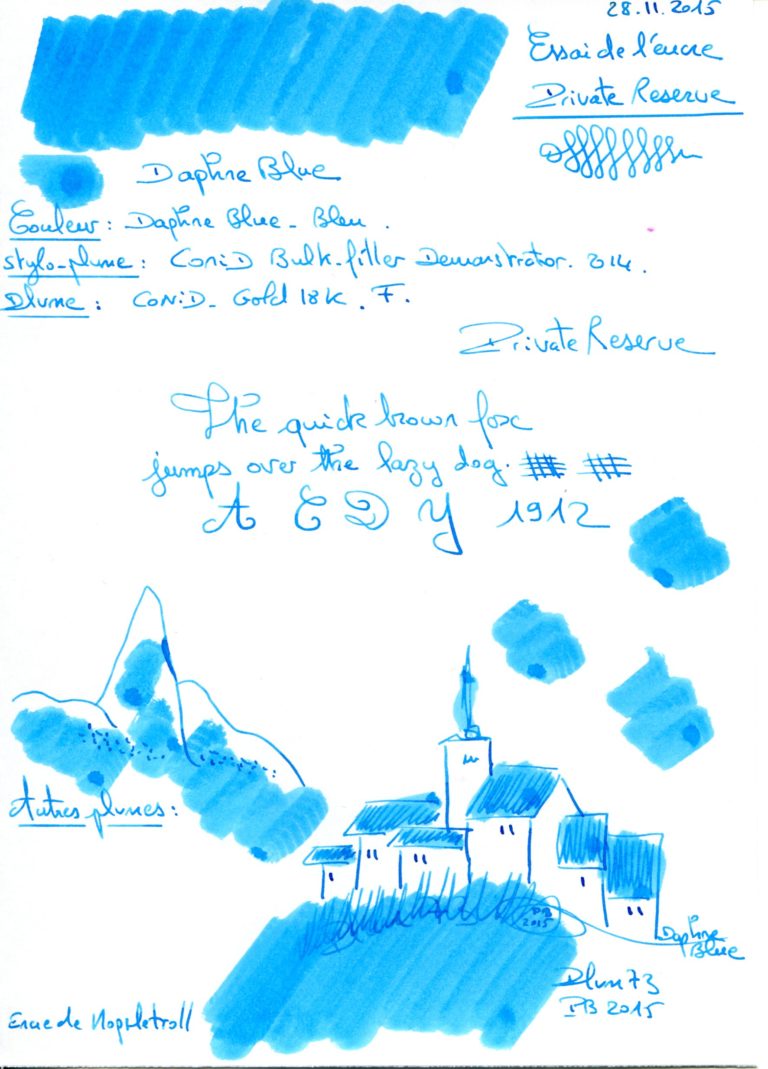 28.11.2015
Essai de l'encre
Private Reserve
Daphne Blue
Couleur : Daphne Blue - Bleu.
Stylo-plume : CONiD Bulk-filler Demonstrator. 2014.
Plume : CONiD - Gold 18K. F.
Private Reserve
The quick brown fox
jumps over the lazy dog.
A E D Y 1912
Autres plumes :
PB
2015
Daphne
Blue
Plum73
PB 2015
Encre de